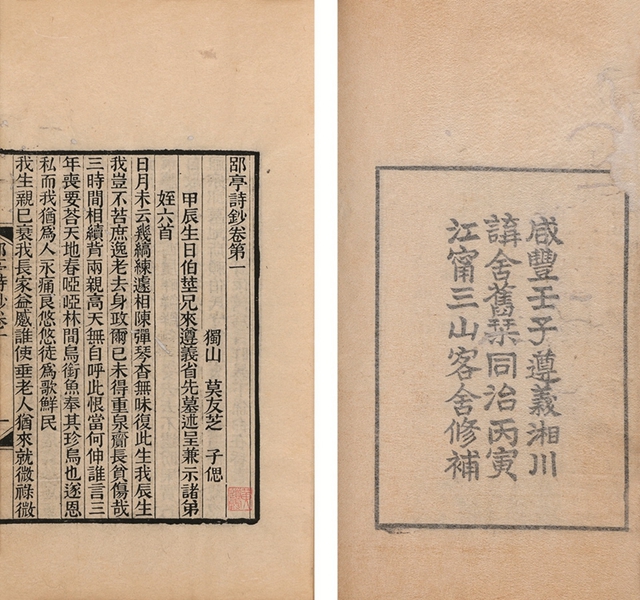 咸豐壬子遵義湘川
講舍舊栞同治丙寅
江甯三山客舍修補
邵亭詩鈔卷第一
獨山 莫友芝 子偲
甲辰生日伯莖兄來遵義省先墓述呈兼示諸弟
姪六首
日月未云幾縞練遽相陳彈琴杳無味復此生我辰生
我豈不苔庶逸老去身政爾已未得重泉齋長貧傷哉
三時間相續背兩親高天無自呼此恨當何伸誰言三
年喪要荅天地春啞啞林間烏銜魚奉其珍烏也遂恩
私而我猶為人永痛良悠悠徒為歌鮮民
我生親已衰我長家益慼誰使垂老人猶來就微祿微